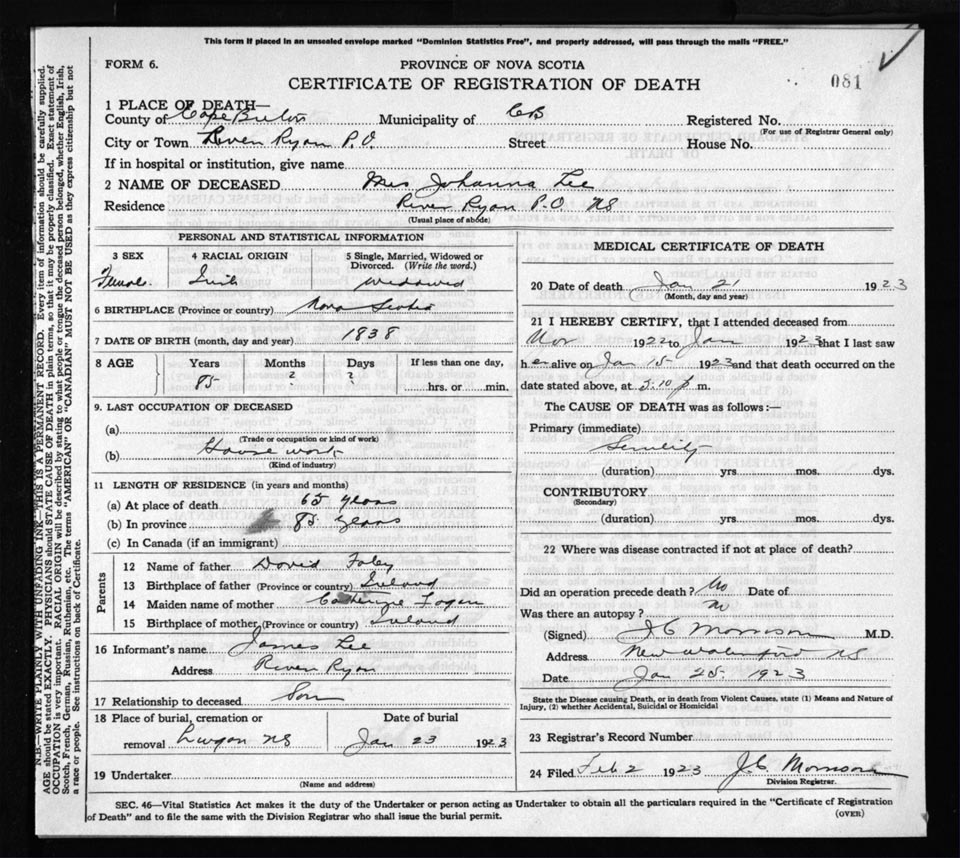 This form if placed in an unsealed envelope marked "Dominion Statistics Free", and properly addressed, will pass through the mails "FREE."
FORM 6.
PROVINCE OF NOVA SCOTIA
CERTIFICATE OF REGISTRATION OF DEATH
081
1 PLACE OF DEATH—
County of Cape Breton Municipality of CB Registered No.
(For use of Registrar General only)
City or Town River Ryan P.O. Street House No.
If in hospital or institution, give name
2 NAME OF DECEASED Mrs Johanna Lee
Residence River Ryan P.O. NS
(Usual place of abode)
PERSONAL AND STATISTICAL INFORMATION
3 SEX 4 RACIAL ORIGIN 5 Single, Married, Widowed or Divorced. (Write the word.)
Female Irish Widowed
6 BIRTHPLACE (Province or country) Nova Scotia
7 DATE OF BIRTH (month, day and year) 1838
8 AGE Years Months Days If less than one day,
85 ? ? hrs. or min.
9. LAST OCCUPATION OF DECEASED
(a)
(Trade or occupation or kind of work)
(b) House work
(Kind of industry)
11 LENGTH OF RESIDENCE (in years and months)
(a) At place of death 65 years
(b) In province 85 years
(c) In Canada (if an immigrant)
Parents
12 Name of father David Foley
13 Birthplace of father (Province or country) Ireland
14 Maiden name of mother Fogan
15 Birthplace of mother (Province or country) Ireland
16 Informant's name James Lee
Address River Ryan
17 Relationship to deceased Son
18 Place of burial, cremation or Date of burial
removal Lingan NS Jan 23 1923
19 Undertaker
(Name and address)
MEDICAL CERTIFICATE OF DEATH
20 Date of death Jan 21 1923
(Month, day and year)
21 I HEREBY CERTIFY, that I attended deceased from
Nov 1922 to Jan 1923 that I last saw
her alive on Jan 15 1923 and that death occurred on the
date stated above, at 5.10 p m.
The CAUSE OF DEATH was as follows:—
Primary (immediate)
Senility
(duration) yrs. mos. dys.
CONTRIBUTORY
(Secondary)
(duration) yrs. mos. dys.
22 Where was disease contracted if not at place of death?
Did an operation precede death? No Date of
Was there an autopsy? no
(Signed) J C Morrison M.D.
Address New Waterford NS
Date Jan 25 1923
State the Disease causing Death, or in death from Violent Causes, state (1) Means and Nature of
Injury, (2) whether Accidental, Suicidal or Homicidal
23 Registrar's Record Number
24 Filed Feb 2 1923 J C Morrison
Division Registrar.
SEC. 46—Vital Statistics Act makes it the duty of the Undertaker or person acting as Undertaker to obtain all the particulars required in the "Certificate of Registration
of Death" and to file the same with the Division Registrar who shall issue the burial permit.
(OVER)
N.B.—WRITE PLAINLY WITH UNFADING INK—THIS IS A PERMANENT RECORD. Every item of information should be carefully supplied.
AGE should be stated EXACTLY. PHYSICIANS should STATE CAUSE OF DEATH in plain terms, so that it may be properly classified. Exact statement of
OCCUPATION is very important. RACIAL ORIGIN will be described by stating to what people or tongue the deceased person belonged, whether English, Irish,
Scotch, French, German, Russian, Ruthenian, etc. The terms "AMERICAN" OR "CANADIAN" MUST NOT BE USED as they express citizenship but not
a race or people. See instructions on back of Certificate.